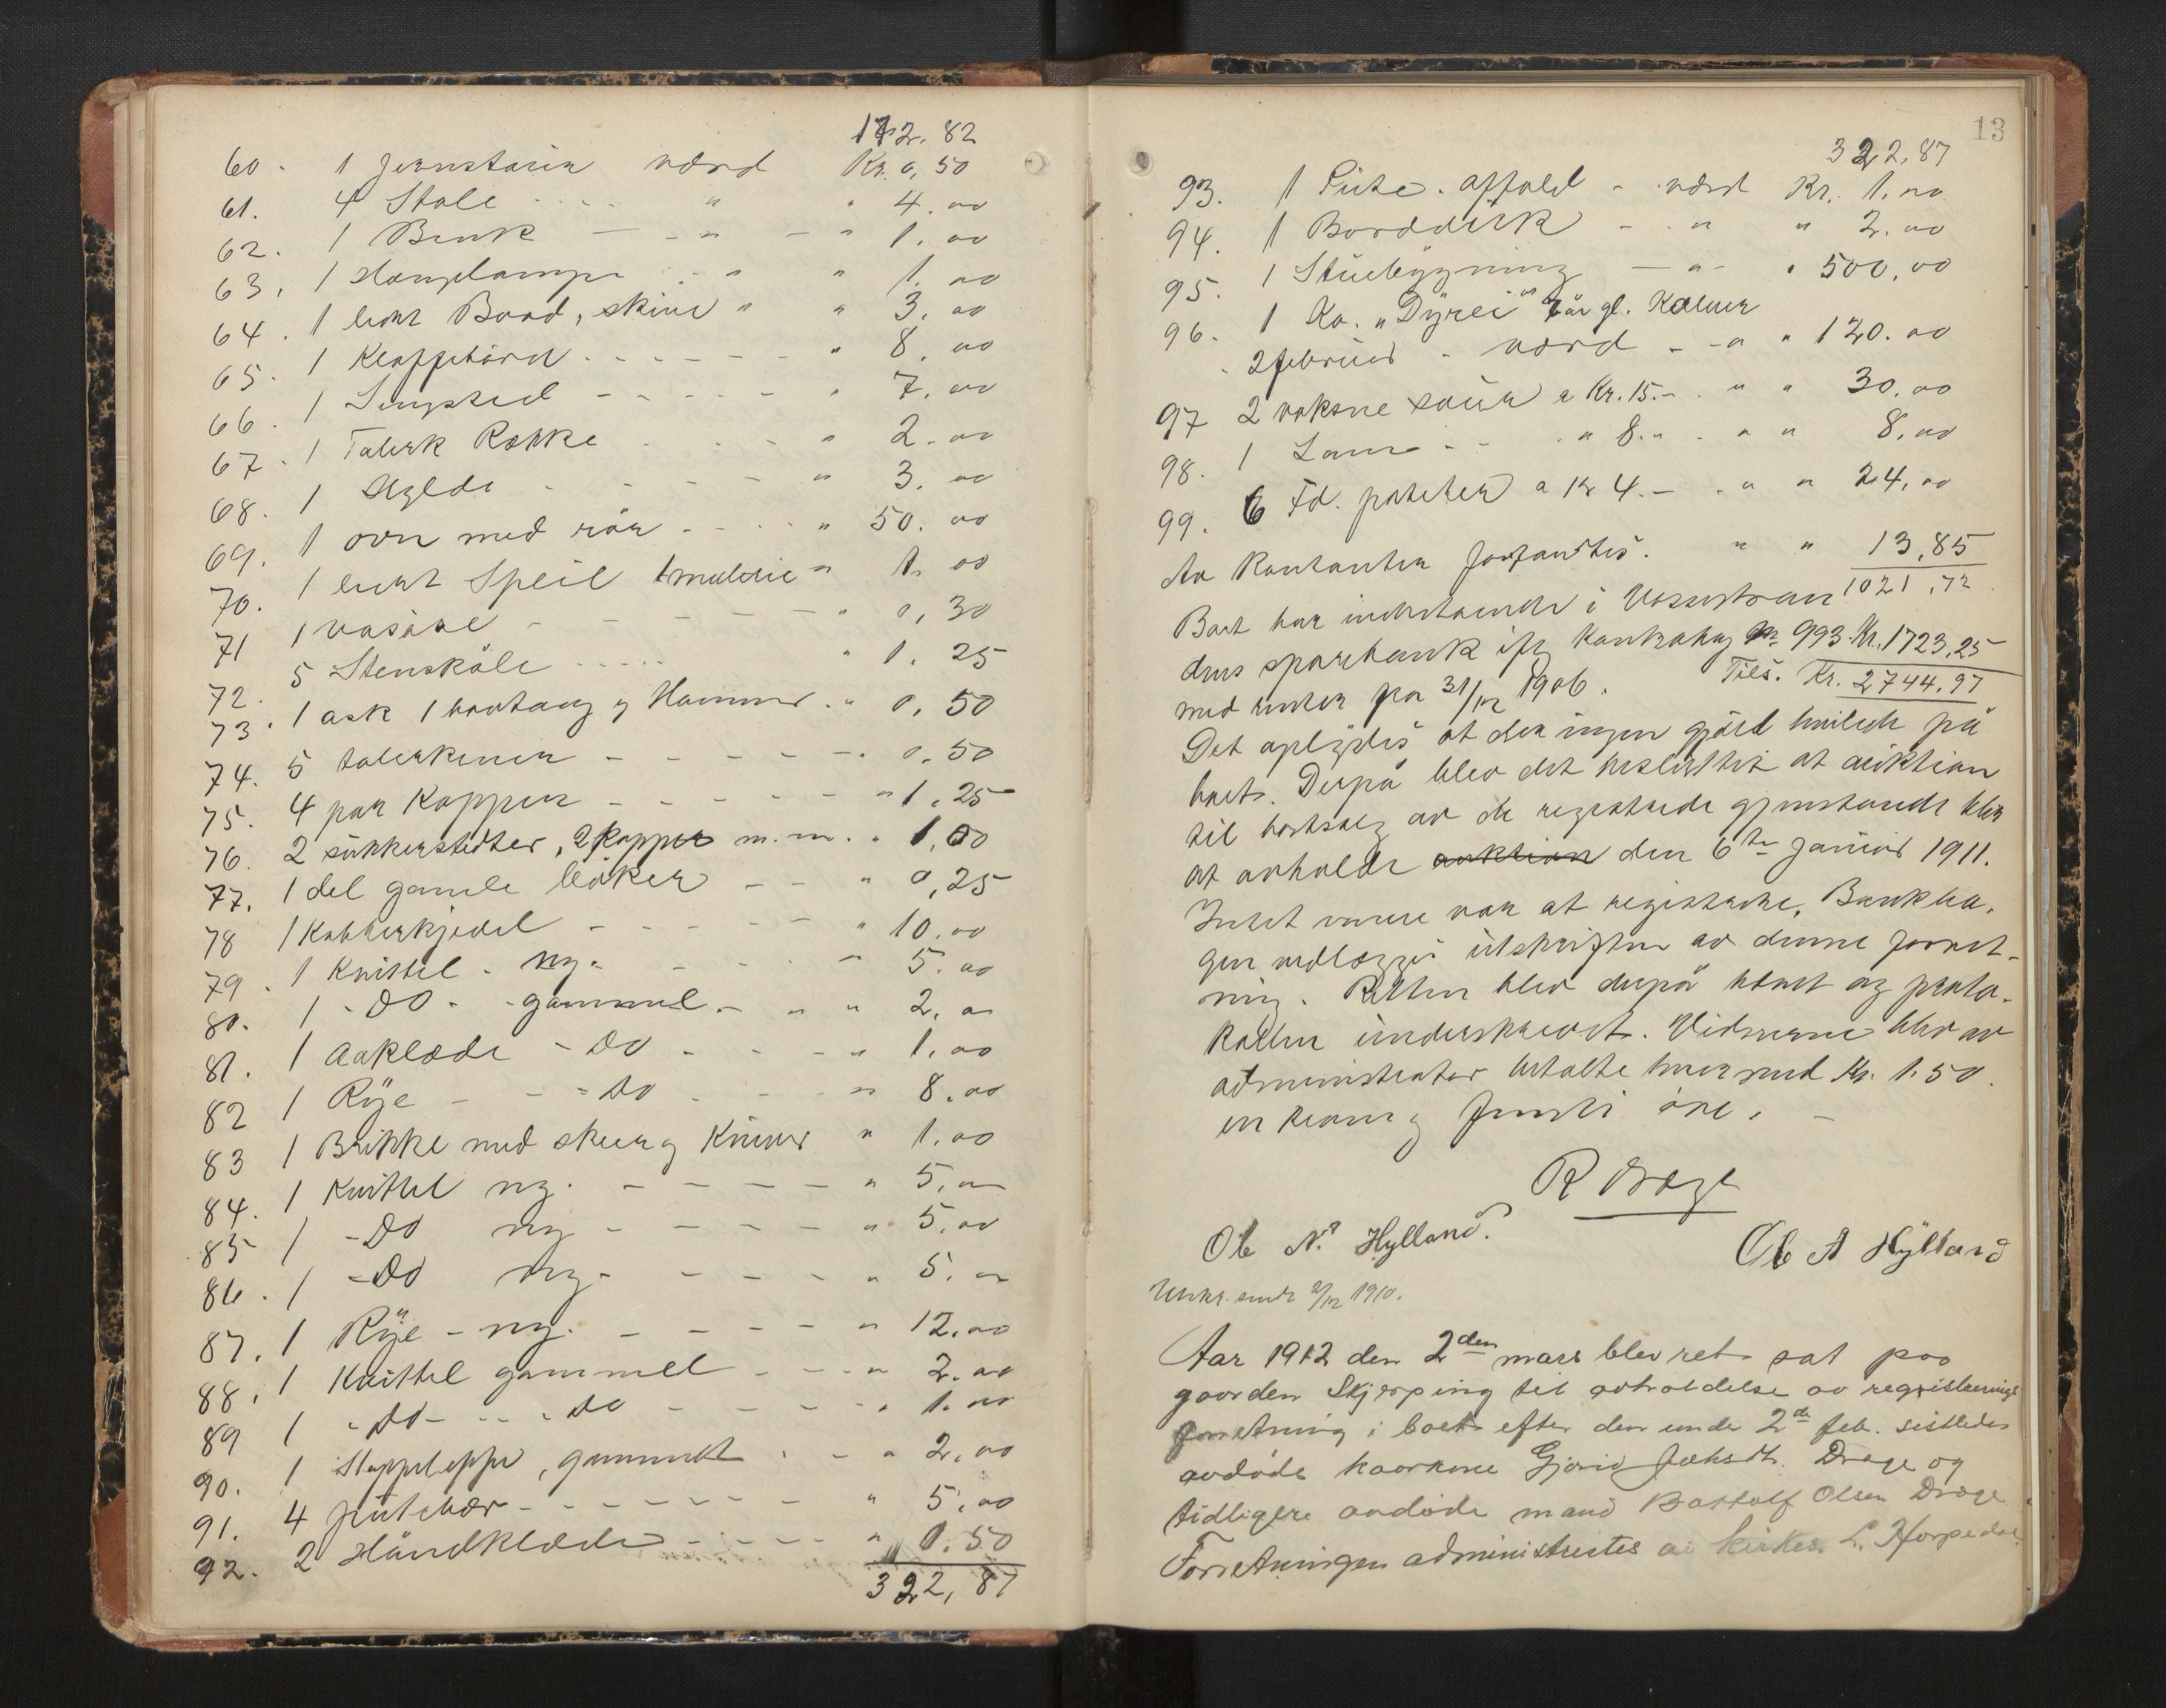 172,82
60. 1 Jernstøur værd Kr. 0,50
61. 4 Stole " " 4.00
62. 1 Benk " " 1.00
63. 1 Hænglampe " " 1.00
64. 1 lidet Bord, skive " " 3.00
65. 1 Klappebord " 8.00
66. 1 Sengsted " 7.00
67. 1 Talerk Rekke " 2.00
68. 1 Hylde " 3.00
69. 1 ovn med rör " 50.00
70. 1 lidet Speil " 1.00
71 1 " 0,30
72. 5 Stenskåle " 1.25
73. 1 ask 1 hovtang og Hammer " 0,50
74. 5 talerkener 0.50
75. 4 par Kopper " 1,25
76. 2 sukkerstetter, 2 kopper m.m. " 1,00
77. 1 del gamle böker " 0,25
78 1 Kobberkjedel " 10.00
79. 1 Knittel - ny. " 5.00
80. 1 - Do - gammel - " " 2,00
81. 1 Aaklæde - Do - " 1,00
82 1 Rÿe - Do " 8.00
83 1 Brikke med skeer og Kniver " 1.00
84. 1 Knittel ny. " 5,00
85 1 - Do ny " 5.00
86. 1 - Do ny. " 5.00
87. 1 Rÿe - ny. " 12.00
88. 1 Knittel gammel " 2.00
89 1 - Do - Do " 1.00
90. 1 Stoppeteppe, gammelt " 2,00
91. 4 putevær " 5,00
92. 2 Håndklæde " 1.50
322,87
13
322,87
93. 1 Pute. affald - værd Kr. 1.00
94. 1 Borddisk " " 2.00
95. 1 Stuebygning " " 500,00
96. 1 Ko. "Dÿrei" 7 år gl. Kalver
2 februar - værd " " 120.00
97 2 voksne sauer a Kr. 15.- " " 30.00
98. 1 Lam " 8." " " 8,00
99. 6 Td. poteter a Kr 4.- " " 24,00
Av Kontanter forfandtes. " " 13,85
1021,72
Boet har indestaaende i Vossestran
dens sparebank ifg Kontrabog No 993 Kr. 1723,25
med renter pr 31/12 1906. Tils. Kr. 2744.97
Det oplystes at der ingen gjæld hvilede på
boet. Derpå blev det besluttet at auktion
til bortsalg av de registrede gjenstande blir
at avholde auktion den 6te januar 1911.
Intet mere var at registrere. Bankbo-
gen vedlægges utskriften av denne forret-
ning. Retten blev derpå hævet og proto-
kollen underskrevet. Vidnerne blev av
administrator betalte hver med Kr. 1.50.
en krone og femti öre. -
R Dræge
Ole N. Hylland.
Ole A Hÿlland
Utskr. sendt 2/12 1910.
Aar 1912 den 2den mars blev ret sat paa
gaarden Skjerping til avholdelse av registrerings
forretning i boet efter den unde 2de feb. sistleden
avdöde kaarkone Gjørid Jakobsdt. Dræge og
tidligere avdöde mand Bottolf Olsen Dræge
Forretningen administrertes av kirkes. L. Horpedal